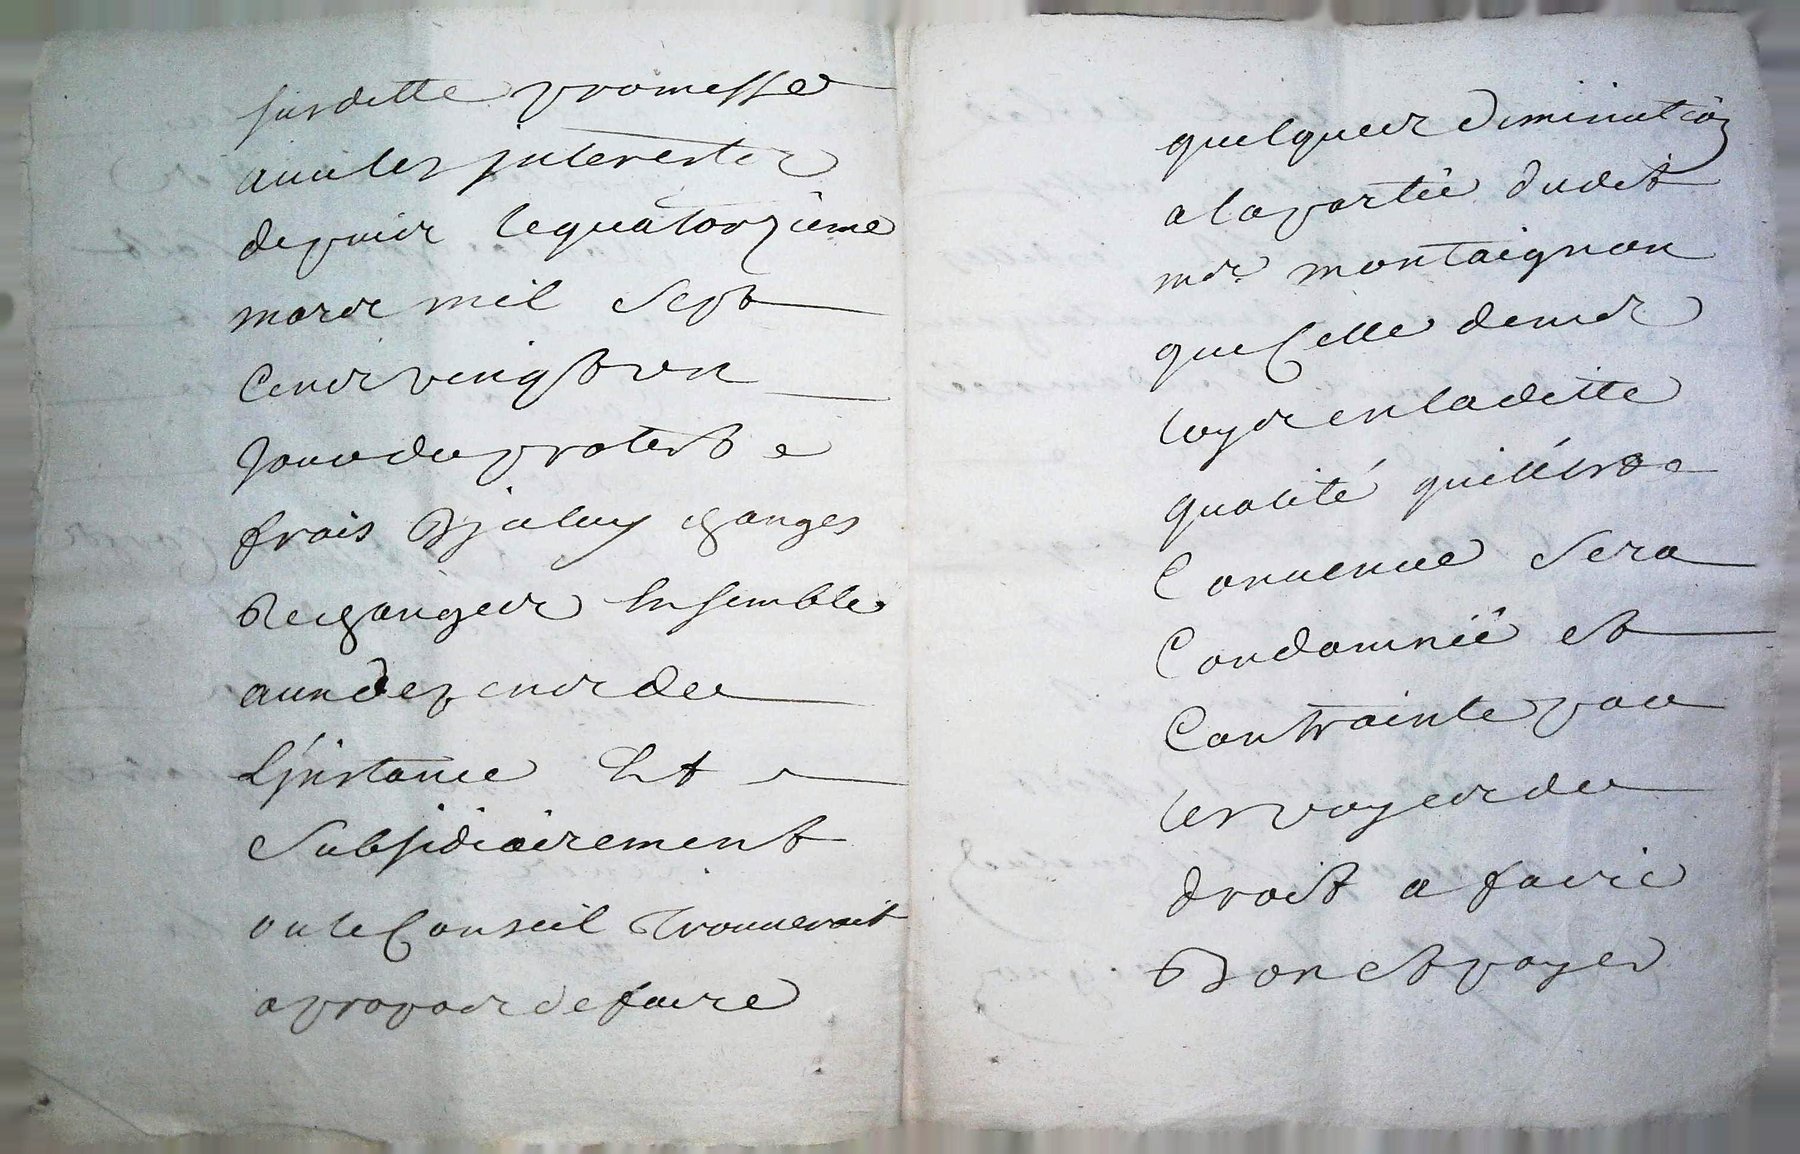 susditte promesse
avec les jnterestz
depuis le quatorzième
mars mil sept
cens vingt un
jour du protest
frais d'jceluy changes
Rechanges Ensemble
aux despens de
L'jnstance Et
Subsidiairement
ou le Conseil Trouveroit
a propos de faire
quelques diminution
a la partie dudit
mr montaignon
que Celle demdr
loys en laditte
qualité quil est
Convenue Sera
Condamnée et
Contrainte par
les voyes de
droit a faire
Bon et payer